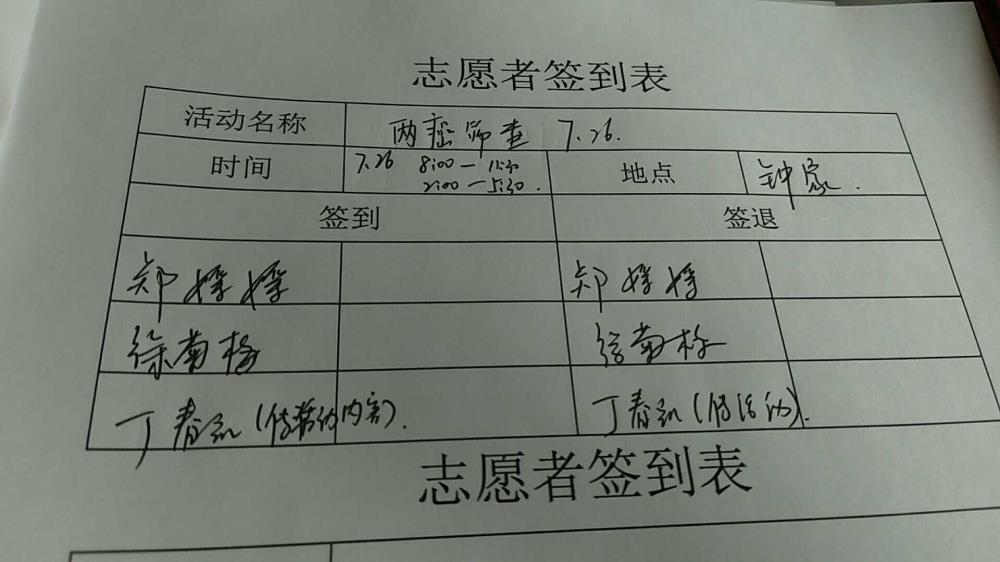 志愿者签到表
活动名称 两癌筛查 7.26.
时间 7.26 8:00—11:30
2:00—5:30. 地点 钟家.
签到 签退
郑婷婷 郑婷婷
徐南梅 徐南梅
丁春 ( 活动内容). 丁春 ( 活动).
志愿者签到表